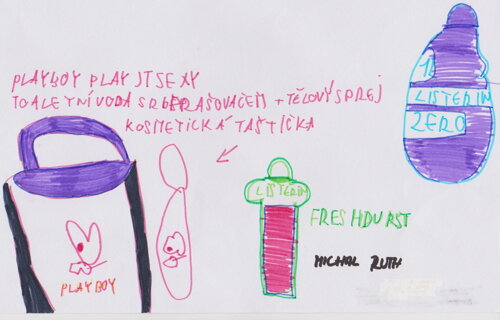 PLAYBOY PLAY IT SEXY
TOALETNÍ VODA S ROZPRAŠOVAČEM + TĚLOVÝ SPREJ
KOSMETICKÁ TAŠTIČKA
1L
LISTERIN
ZERO
LISTERIN
FRESHBURST
PLAYBOY
MICHAL RUTH